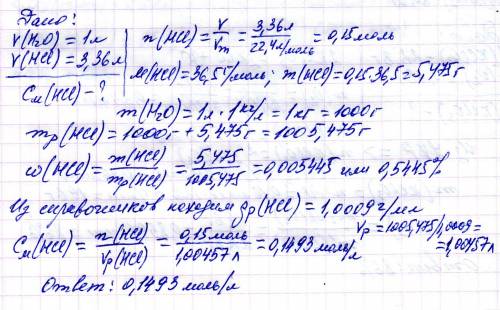 Дано:
V(H₂O) = 1л
V(HCl) = 3,36л
Cм(HCl) - ?
n(HCl) = V/Vm = 3,36л/22,4л/моль = 0,15моль
M(HCl) = 36,5г/моль; m(HCl) = 0,15·36,5 = 5,475г
m(H₂O) = 1л · 1кг/л = 1кг = 1000г
mр(HCl) = 1000г + 5,475г = 1005,475г
ω(HCl) = m(HCl)/mр(HCl) = 5,475/1005,475 = 0,005445 или 0,5445%
Из справочников находим ρр(HCl) = 1,0009г/мл
Cм(HCl) = n(HCl)/Vр(HCl) = 0,15моль/1,00457л = 0,1493моль/л
Vр = 1005,475/1,0009 =
= 1,00457л
Ответ: 0,1493 моль/л